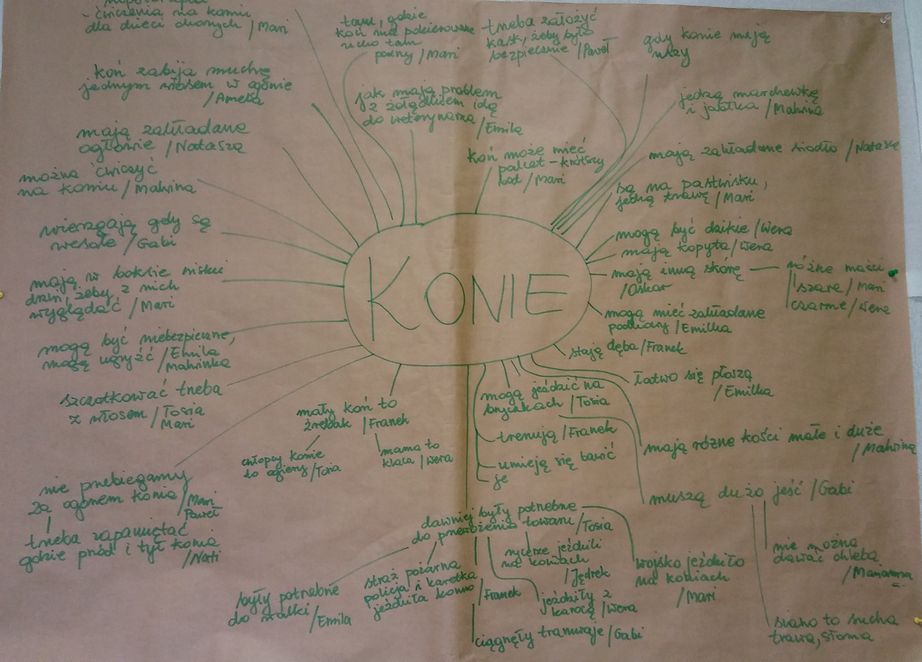 - ćwiczenia na koniu
dla dzieci chorych / Mari
koń zabija muchę
jednym włosem w ogonie
/ Amelia
mają zakładane
ogłowie / Natasza
można ćwiczyć
na koniu / Malwina
wierzgają gdy są
wesołe / Gabi
mają w boksie nisko
drzwi, żeby z nich
wyglądać / Mari
mogą być niebezpieczne,
mogą ugryźć / Emilka
Malwinka
szczotkować trzeba
z włosem / Tosia
Mari
nie przebiegamy
za ogonem konia / Mari
Paweł
trzeba zapamiętać
gdzie przód i tył konia
/ Nati
tam, gdzie
koń ma skierowane
ucho tam
patrzy / Mari
jak mają problem
z żołądkiem idą
do weterynarza / Emilka
trzeba założyć
kask, żeby było
bezpiecznie / Paweł
koń może mieć
palcat - krótszy
bat / Mari
gdy konie mają
wszy
jedzą marchewkę
i jabłka / Malwina
mają zakładane siodło / Natasza
są na pastwisku,
jedzą trawę / Mari
mogą być dzikie / Wera
mają kopyta / Wera
mają inną skórę
/ Oskar
różne maści
szare / Mari
czarne / Wera
mogą mieć zakładane
podkowy / Emilka
stają dęba / Franek
łatwo się płoszą
/ Emilka
KONIE
mały koń to
źrebak / Franek
chłopcy konie
to ogiery / Tosia
mama to
klacz / Wera
mogą jeździć na
bryczkach / Tosia
trenują / Franek
umieją się bawić
je
mają różne kości małe i duże
/ Malwina
muszą dużo jeść / Gabi
nie można
dawać chleba
/ Marianna
siano to sucha
trawa, słoma
dawniej były potrzebne
do przewożenia towaru / Tosia
były potrzebne
do walki / Emilka
straż pożarna
policja i karetka
jeździła konno / Franek
rycerze jeździli
na koniach
/ Jędrek
jeździły z
karocą / Wera
ciągnęły tramwaje / Gabi
wojsko jeździło
na koniach
/ Mari